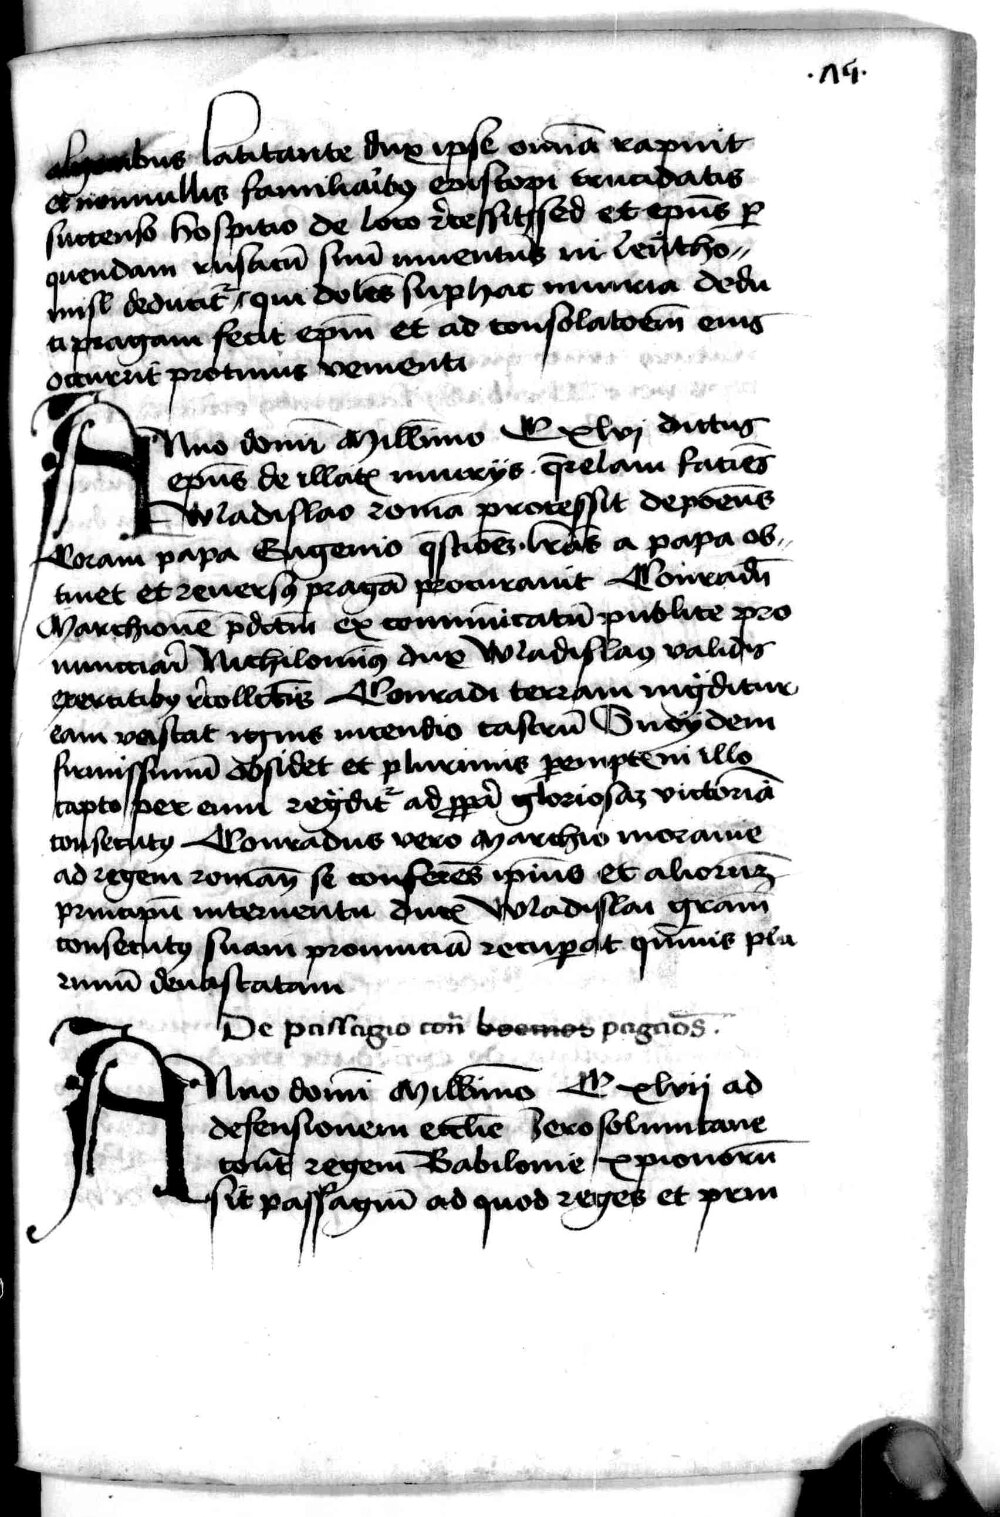 ·75·
algoribus latitante dux ipse omnia rapuit
et nonnullis familiaribus episcopi trucidatis
succenso hospitio de loco recessit sed et epus per
quendam rusticu suu inuentus in leutho-
misl deducit qui doles sup hac iniuria dedu
ci pragam fecit epm et ad consolatoem eius
occurrit protinus venienti
Anno domi Millimo C xlvj dictus
epus de illatis iniurijs querelam facies
Wladislao roma processit deponens
Coram papa Eugenio qstioez lras a papa ob-
tinet et reuersus praga procurauit Conradu
Marchione pdctm excommunicatu publice pro
nuncciari Nichilominus dux Wladislaus validis
exercitibus recollectis Conradi terram ingreditur
eam vastat ignis incendio castru Snoydem
firmissimu obsidet et plurimis peremptis in illo
capto per eum redit ad ppria gloriosaz victoria
consecutus Conradus vero Marchio morauie
ad regem romanu se conferes ipius et aliorum
principu interuentu ducis Wladislai gram
consecutus suam prouincia recuperat quauis plu
rimu deuastatam
De passagio contra boemos paganos.
Anno domi Millimo C xlvij ad
defensionem ecclie Jerosolimitane
contra regem Babilonie xpianorum
fit passagiu ad quod reges et prin